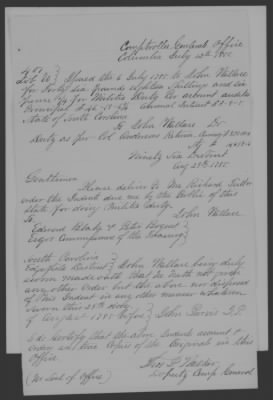 Comptroller Generals Office
Columbia July 20th
Issued the 6 July 1785 to John Wallace
for Forty Six pounds Eighteen Shillings and six
pence for Militia Duty Per account audited
Principal £46.18.6 Annual Interest £3.5.8
State of South Carolina
To John Wallace Dr
Duty as per Col Andersons Return
Ninety Six District
Augt 29th 1785
Gentlemen
Please deliver to Mr Richard Tutt
order the Indent due me by the Public of this
State for doing Militia duty
John Wallace
To
Edward Blake & Peter Bocquet
Esqrs Commissioners of the Treasury
South Carolina
Edgefield District } John Wallace being duly
sworn made oath that he hath not given
any other Order but the above nor disposed
of this Indent in any other manner whatsoever
Sworn this 29th day
of August 1785 before } John Purvis J.P.
I do Certify that the above Indent account &
order are true Copies of the Originals in this
office
Deputy Comp General
(No Seal of Office)